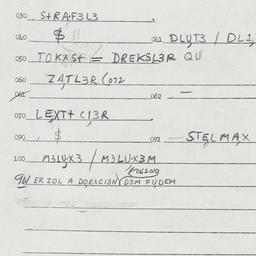 030 S+RAF3L3
040 $ 041 DLU,T3 / DL1,
050 TOKAS+ = DREKSL3R QU
060 ZA,TL3R (072
061 062 —
070 LEXT+ C13R
090 $ 091 — STELMAX
100 M3LUX3 / M3LUX3M
901 ER ZOL A DOEXC13N D3M FUDEM